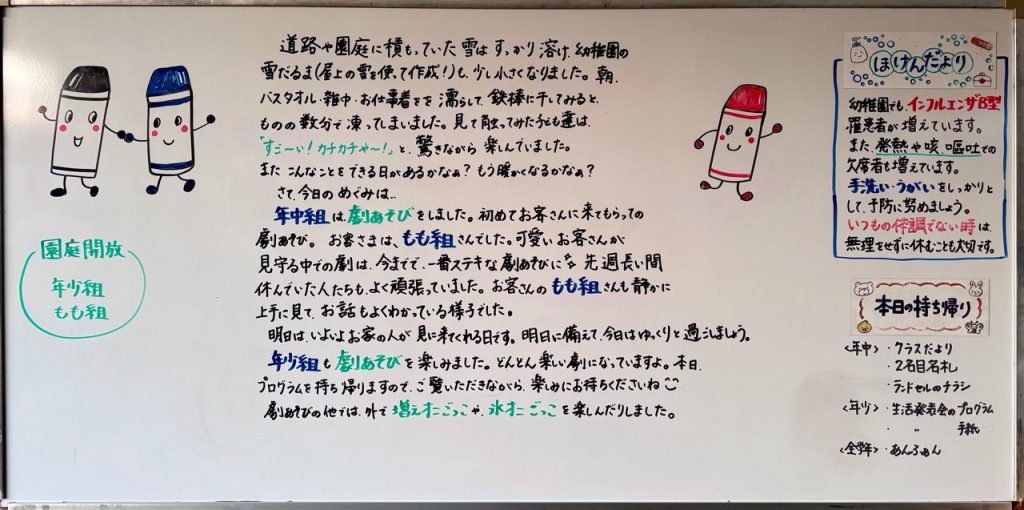 道路や園庭に積もっていた雪はすっかり溶け、幼稚園の
雪だるま(屋上の雪を使って作成!)も、少し小さくなりました。朝、
バスタオル・雑巾・お仕事着をを濡らして、鉄棒に干してみると、
ものの数分で凍ってしまいました。見て触ってみた子ども達は、
「すご〜い!カチカチや〜!」と、驚きながら楽しんでいました。
またこんなことをできる日があるかなぁ?もう暖かくなるかなぁ?
さて、今日のめぐみは…
年中組は、劇あそびをしました。初めてお客さんに来てもらっての
劇あそび。お客さまは、もも組さんでした。可愛いお客さんが
見守る中での劇は、今までで、一番ステキな劇あそびに 先週長い間
休んでいた人たちも、よく頑張っていました。お客さんのもも組さんも静かに
上手に見て、お話もよくわかっている様子でした。
明日は、いよいよお家の人が見に来てくれる日です。明日に備えて、今日はゆっくりと過ごしましょう。
年少組も劇あそびを楽しみました。どんどん楽しい劇になっていますよ。本日、
プログラムを持ち帰りますので、ご覧いただきながら、楽しみにお待ちくださいね
劇あそびの他では、外で増えオニごっこや、氷オニごっこを楽しんだりしました。
園庭開放
年少組
もも組
ほけんだより
幼稚園でも、インフルエンザB型
罹患者が増えています。
また、発熱や咳、嘔吐での
欠席者も増えています。
手洗い・うがいをしっかりと
して、予防に努めましょう。
いつもの体調でない時は、
無理をせずに休むことも大切です。
本日の持ち帰り
<年中>・クラスだより
・2名目名札
・ランドセルのチラシ
<年少>・生活発表会のプログラム
・〃 手紙
<全学年>・あんふぁん